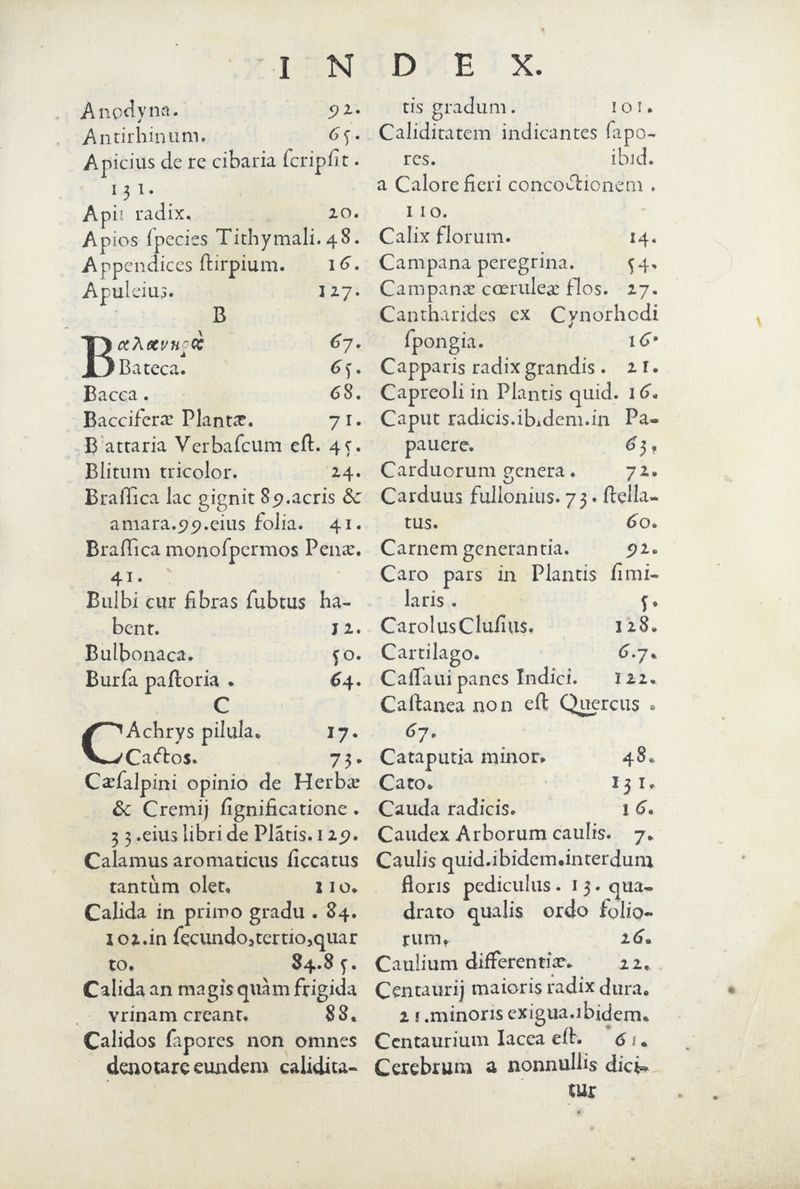 INDEX.
Anodyna. 92.
Antirhinum. 65.
Apicius de re cibaria ſcripſit.
131.
Apii radix. 20.
Apios ſpecies Tithymali. 48.
Appendices ſtirpium. 16.
Apuleius. 127.
B
Bateca. 65.
67.
Bacca. 68.
Bacciferæ Plantæ. 71.
Battaria Verbaſcum eſt. 45.
Blitum tricolor. 24.
Braſſica lac gignit 89.acris &
amara.99.eius folia. 41.
Braſſica monoſpermos Penæ.
41.
Bulbi cur fibras ſubtus ha-
bent. 12.
Bulbonaca. 50.
Burſa paſtoria. 64.
C
CAchrys pilula. 17.
Cactos. 73.
Cæſalpini opinio de Herbæ
& Cremij ſignificatione.
33.eius libri de Plātis. 129.
Calamus aromaticus ſiccatus
tantùm olet. 110.
Calida in primo gradu. 84.
102.in ſecundo,tertio,quar
to. 84.85.
Calida an magis quàm frigida
vrinam creant. 88.
Calidos ſapores non omnes
denotare eundem calidita-
tis gradum. 101.
Caliditatem indicantes ſapo-
res. ibid.
a Calore fieri concoctionem.
110.
Calix florum. 14.
Campana peregrina. 54.
Campanæ cœruleæ flos. 27.
Cantharides ex Cynorhodi
ſpongia. 16.
Capparis radix grandis. 21.
Capreoli in Plantis quid. 16.
Caput radicis.ibidem.in Pa-
pauere. 63.
Carduorum genera. 72.
Carduus fullonius. 73. ſtella-
tus. 60.
Carnem generantia. 92.
Caro pars in Plantis ſimi-
laris. 5.
Carolus Cluſius. 128.
Cartilago. 6.7.
Caſſaui panes Indici. 122.
Caſtanea non eſt Quercus.
67.
Cataputia minor. 48.
Cato. 131.
Cauda radicis. 16.
Caudex Arborum caulis. 7.
Caulis quid.ibidem.interdum
floris pediculus. 13. qua-
drato qualis ordo folio-
rum. 26.
Caulium differentiæ. 22.
Centaurij maioris radix dura.
21.minoris exigua.ibidem.
Centaurium Iacea eſt. 61.
Cerebrum a nonnullis dici-
tur